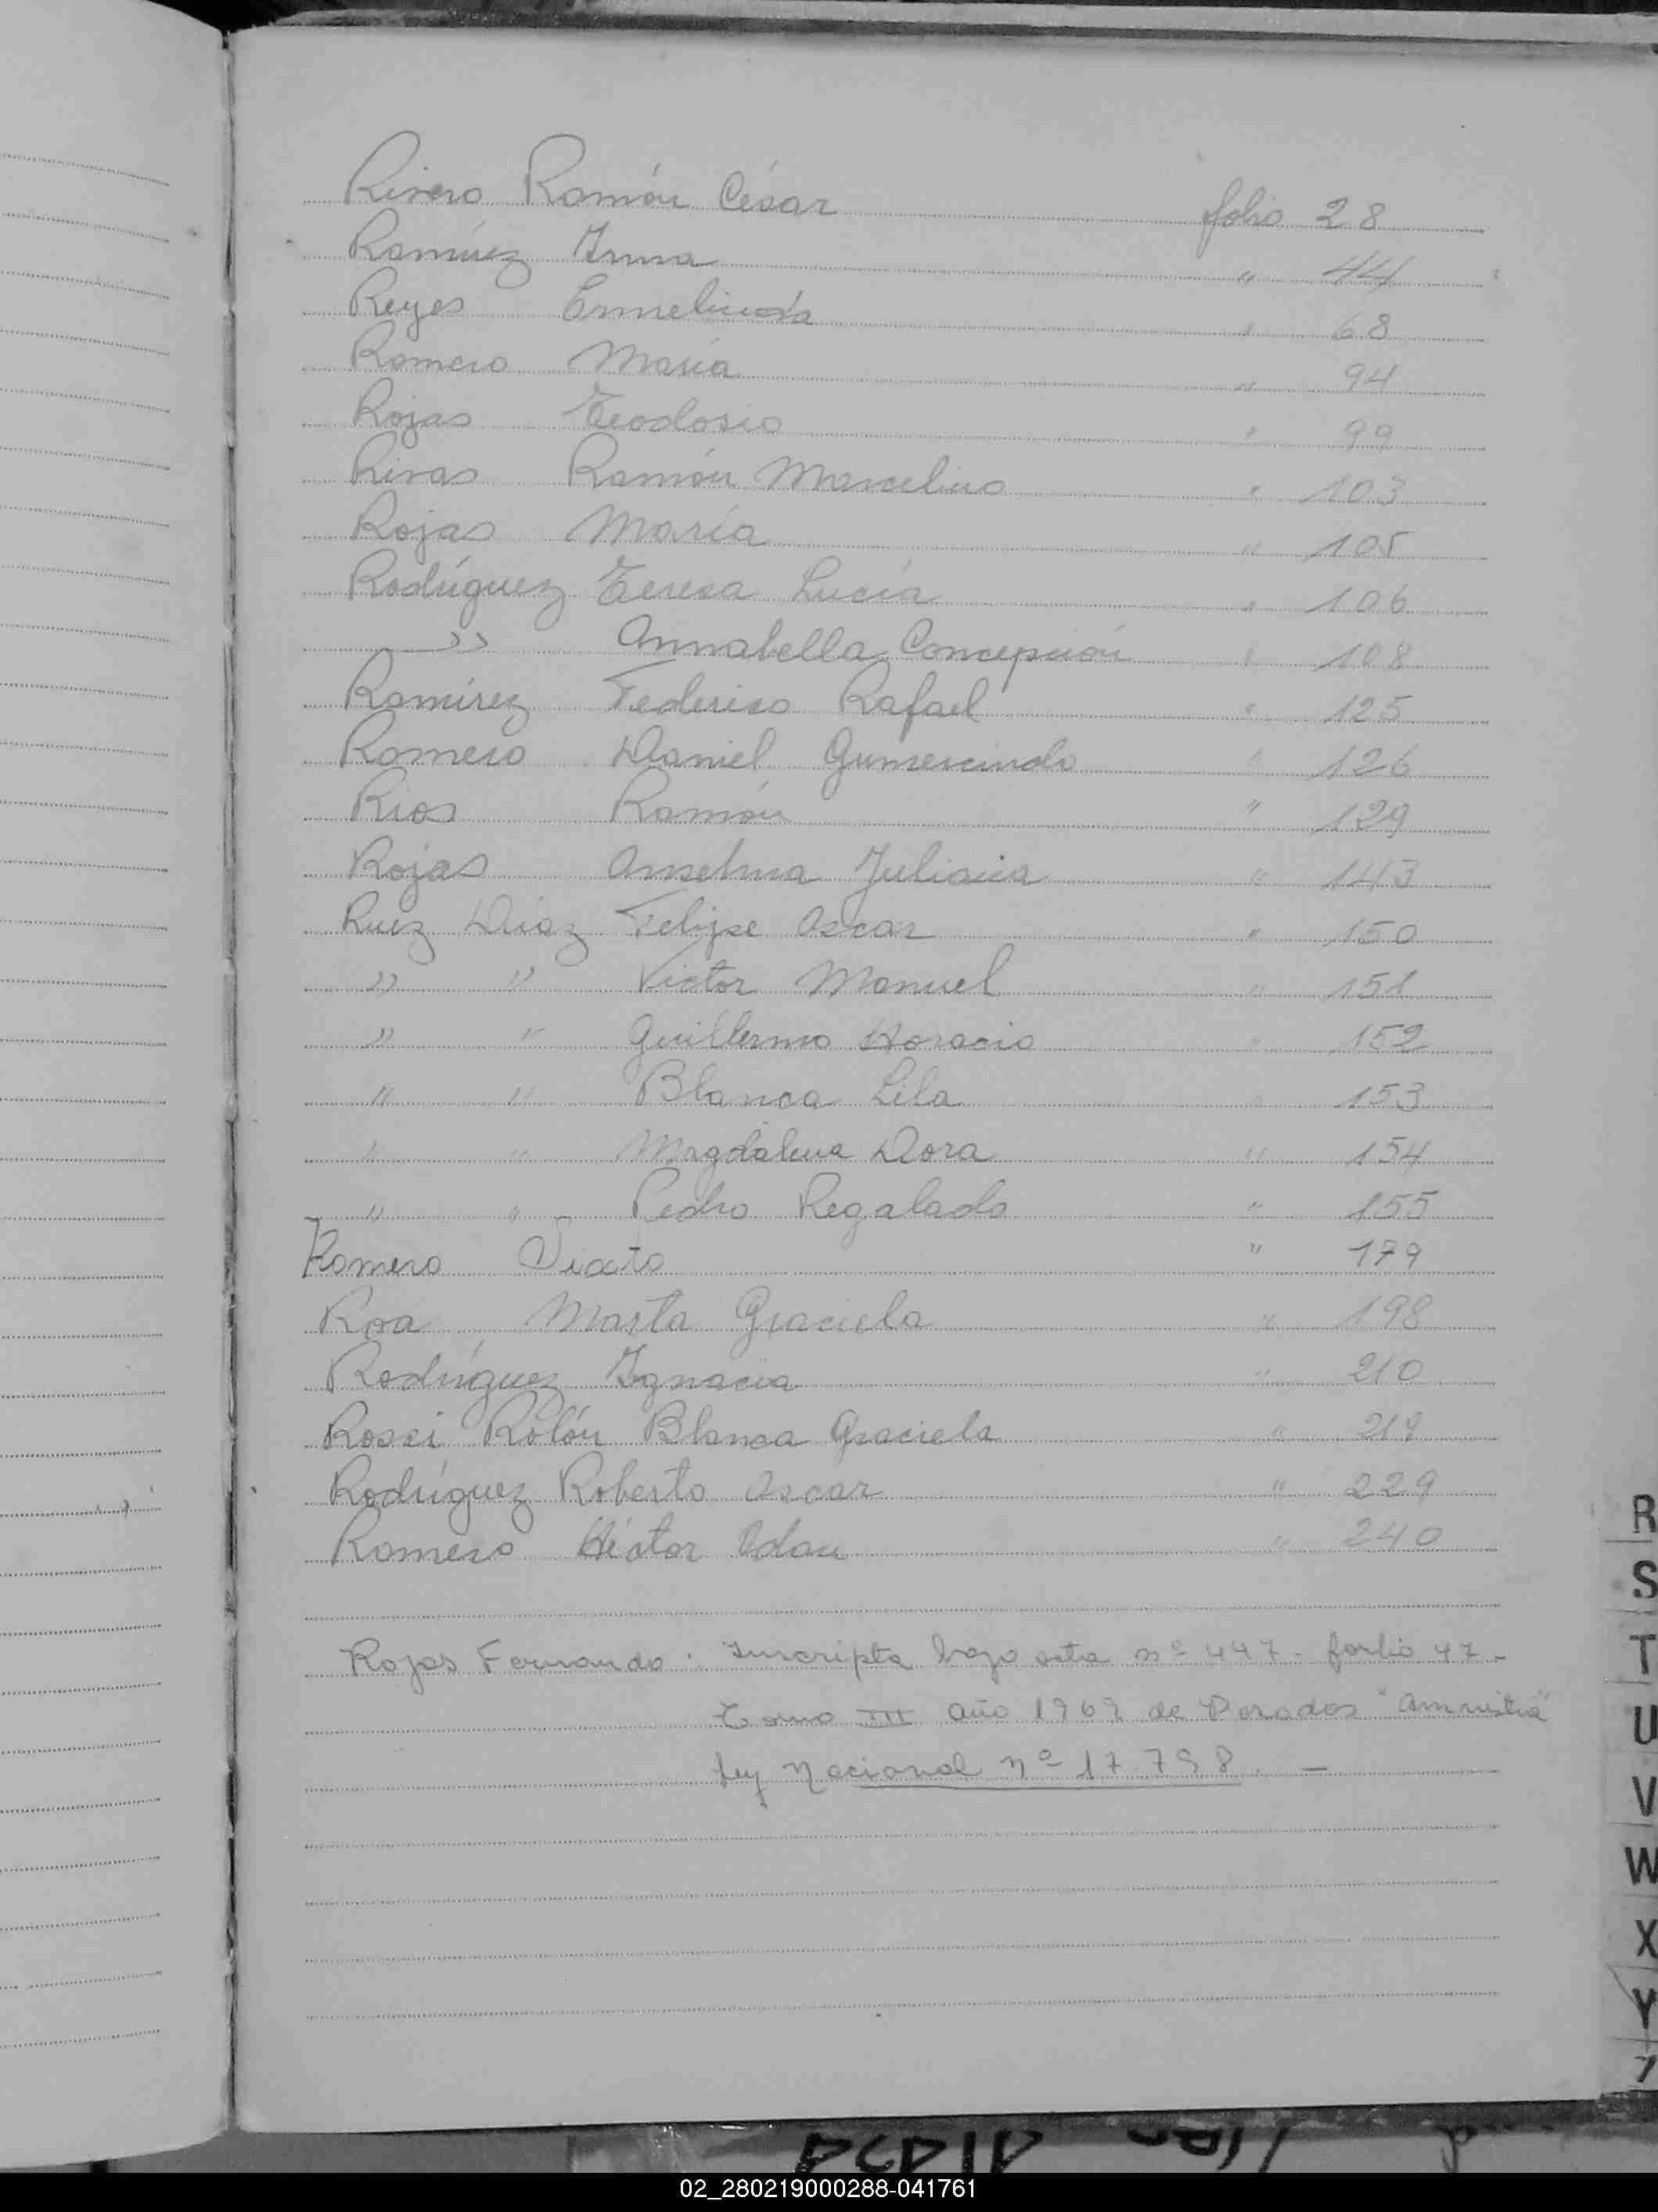 Rivero Ramón César folio 28
Ramírez Irma " 44
Reyes Ermelinda " 68
Romero María " 94
Rojas Teodosio " 99
Rivas Ramón Marcelino " 103
Rojas María " 105
Rodríguez Teresa Lucía " 106
" Annabella Concepción " 108
Ramírez Federico Rafael " 125
Romero Daniel Gumersindo " 126
Rios Ramón " 129
Rojas Anselma Juliana " 143
Ruiz Diaz Felipe Oscar " 150
" " Victor Manuel " 151
" " Guillermo Horacio " 152
" " Blanca Lila " 153
" " Magdalena Dora " 154
" " Pedro Regalado " 155
Romero Sixto " 179
Roa Marta Graciela " 198
Rodríguez Ignacia " 210
Rossi Rolón Blanca Graciela " 219
Rodríguez Roberto Oscar " 229
Romero Héctor Odon " 240
Rojas Fernando . Inscripta bajo acta nº 447 - folio 47 -
Tomo III año 1969 de Parados "amnistia"
Ley Nacional nº 17.798. —
R
S
T
U
V
W
X
Y
Z
02_280219000288-041761